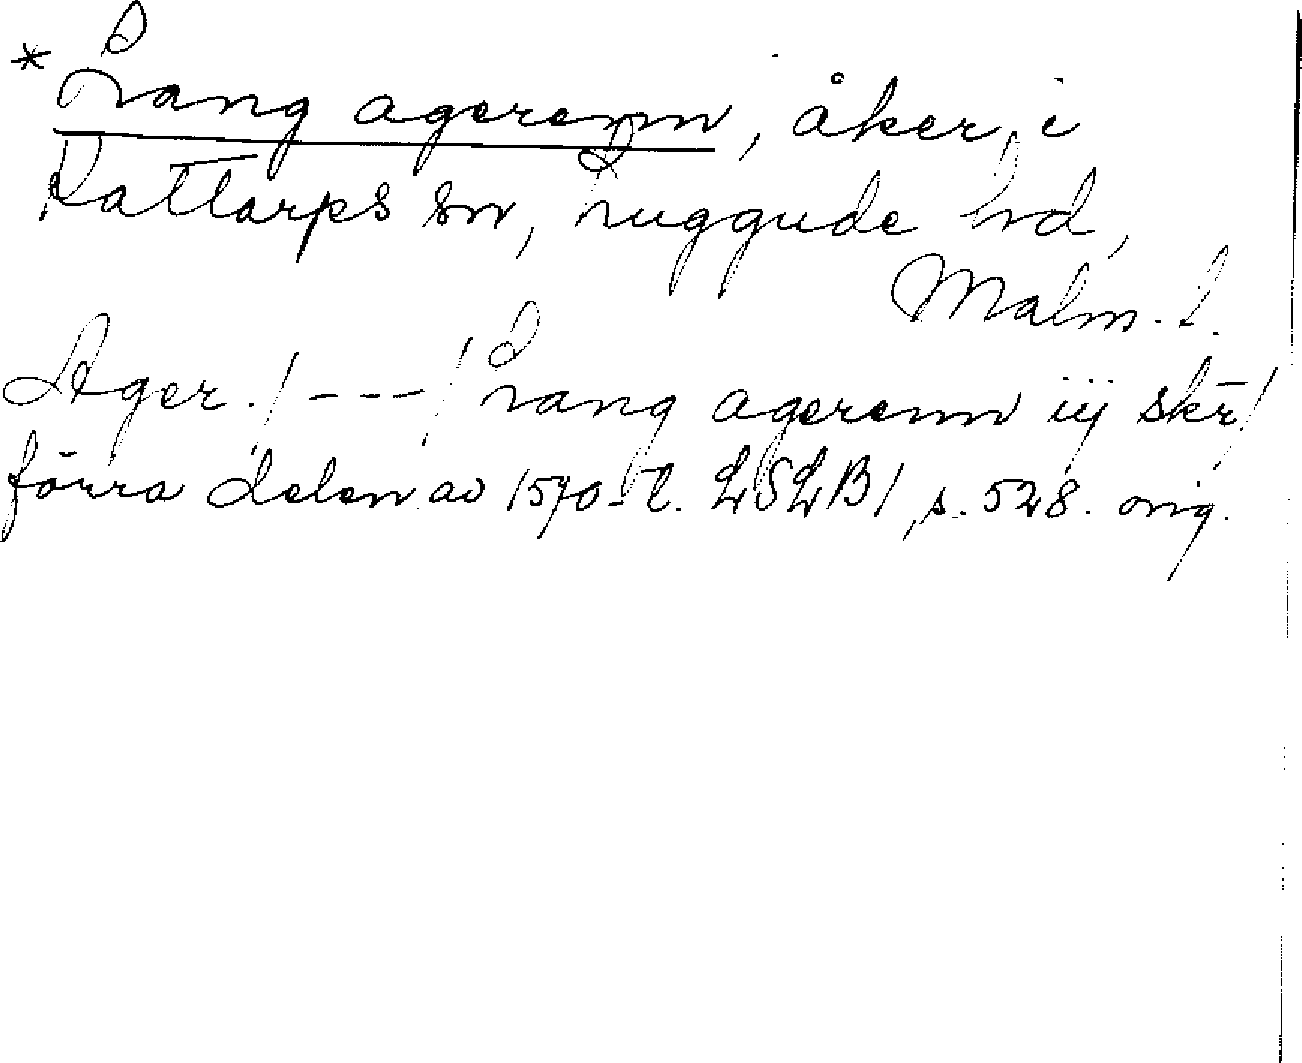 * Lang agerenn, åker, i
Kattarps sn, Luggude hd,
Malm. l.
Ager. / --- / Lang agerenn iij skr̄ /
förra delen av 1570-t. LSLB1, s. 528. orig.